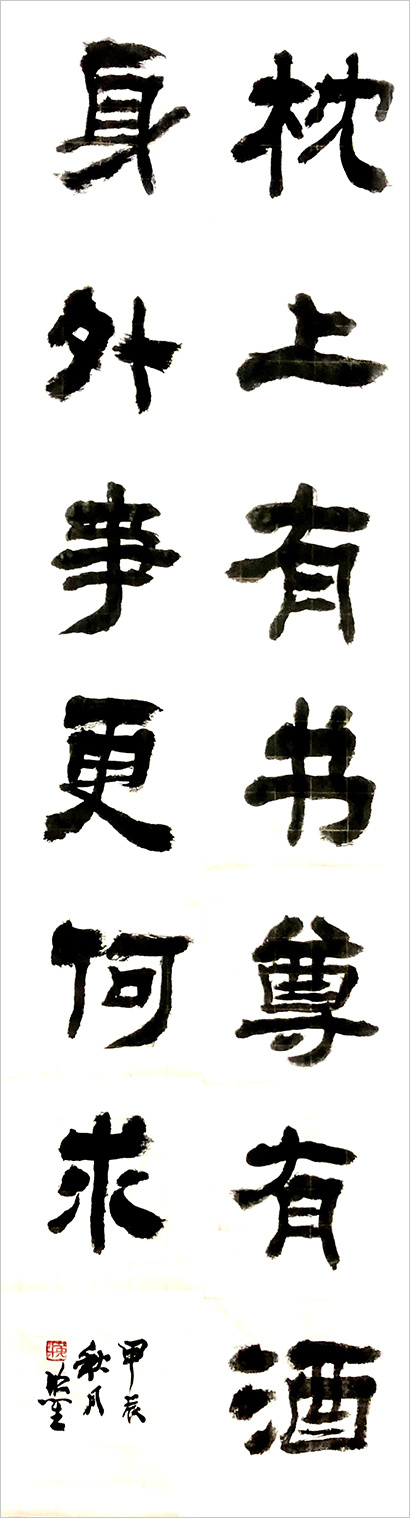 枕上有书尊有酒
身外事更何求
甲辰
秋月